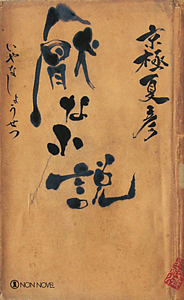 京極夏彦
厭な小説
いやなしょうせつ
NON NOVEL